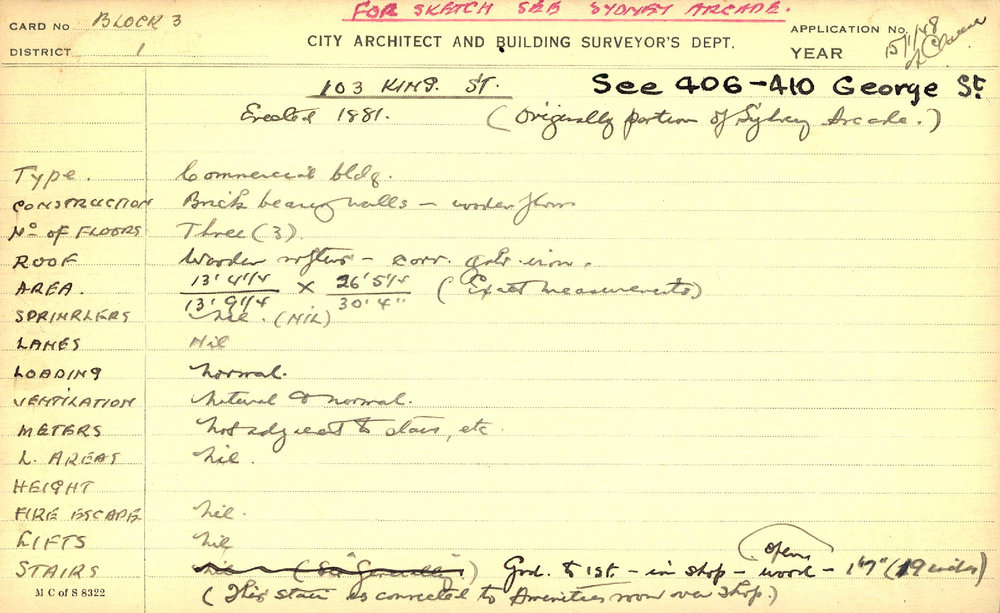 FOR SKETCH SEE SYDNEY ARCADE.
CARD No BLOCK 3
DISTRICT 1
CITY ARCHITECT AND BUILDING SURVEYOR'S DEPT.
APPLICATION No.
YEAR 15/1/48
103 KING. ST. See 406-410 George St
Erected 1881. (Originally portion of Sydney Arcade.)
TYPE. Commercial bldg.
CONSTRUCTION Brick bearing walls - wooden floors
No OF FLOORS Three (3).
ROOF Wooden rafters - corr. galv. iron.
AREA. 13' 4 1/4 / 13' 9 1/4 x 26' 5 1/4 / 30' 4" (Exact measurements)
SPRINKLERS Nil. (NIL)
LANES Nil
LOADING Normal.
VENTILATION Natural & normal.
METERS Not adjacent to stairs, etc
L. AREAS Nil.
HEIGHT
FIRE ESCAPE Nil.
LIFTS Nil
STAIRS Nil (See "Generally") Grd. to 1st. - in shop - open wood - 1'7" (19 inches)
(This stair is connected to Amenities room over shop.)
M C of S 8322